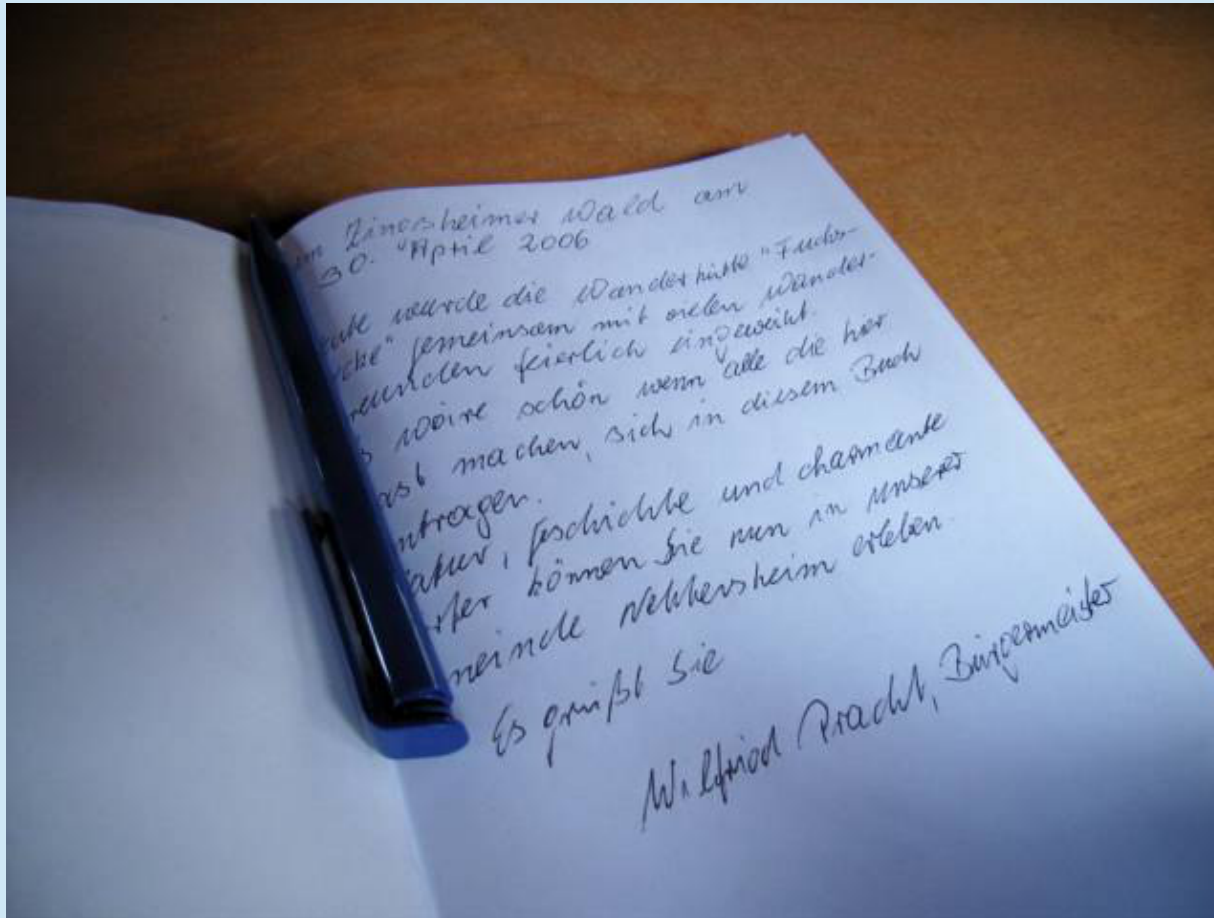 im Zingsheimer Wald am
30. April 2006
wurde die Wanderhütte "Fuchs-
gemeinsam mit vielen Wander-
feierlich eingeweiht.
wäre schön wenn alle die hier
machen, sich in diesem Buch
Geschichte und charmante
können Sie nun in unserer
Nettersheim erleben.
Es grüßt Sie
Wilfried Pracht, Bürgermeister